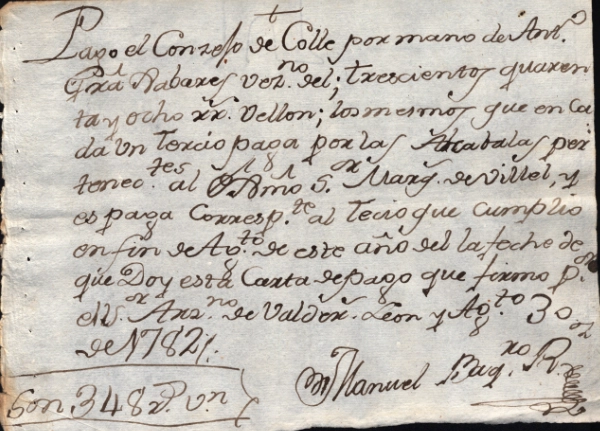 Pago el Conzejo de Colle por mano de Antº.
Grã Nabares vez.no del; trescientos quaren
ta y ocho rr.s Vellon; los mesmos que en Ca
da Un tercio paga por las Alcabalas per
tenec.tes al Sor. Marq.s de Villel, y
es paga Corresp.te al tecio que cumplio
en fin de Ag.to de este año del la feche de
que Doy esta Carta de pago que firmo p.r
el S.or Arz.no de Valder.s Leon y Ag.to 30
de 1782
Manuel Baq.ro R.
Son 348 r.s v.n